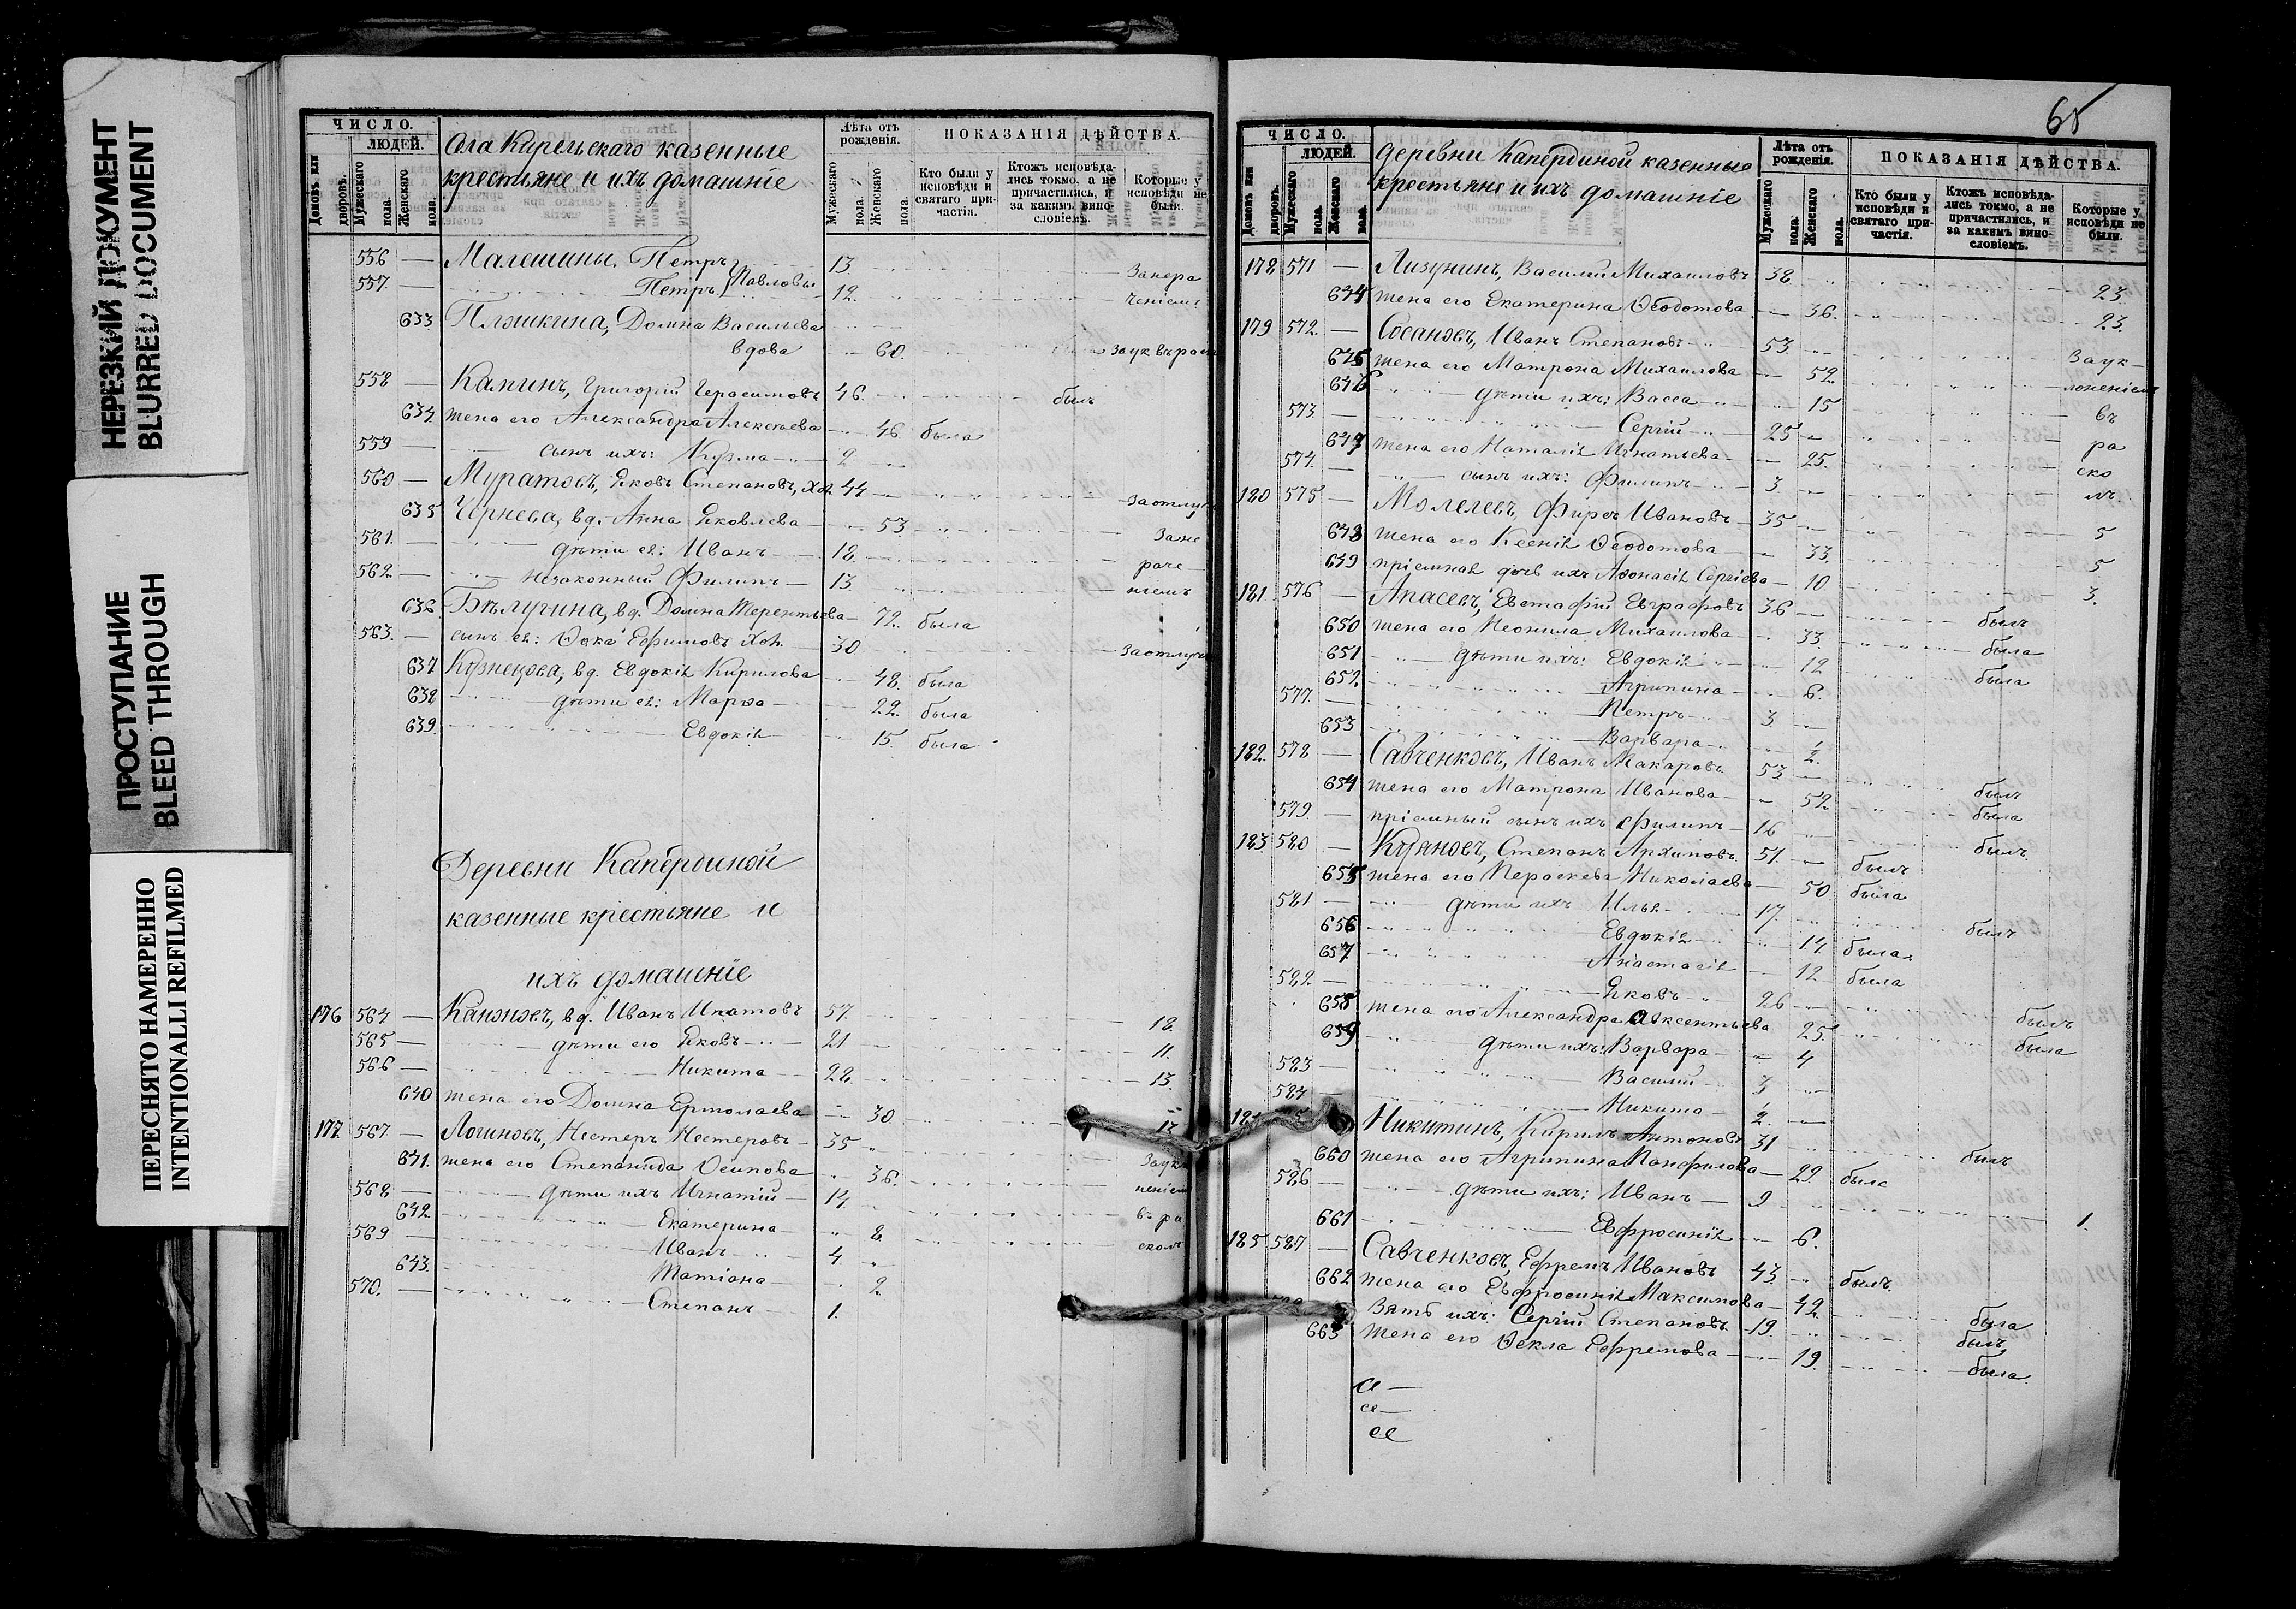 НЕРЕЗКИЙ ДОКУМЕНТ
BLURRED DOCUMENT
ПРОСТУПАНИЕ
BLEED THROUGH
ПЕРЕСНЯТО НАМЕРЕННО
INTENTIONALLI REFILMED
ЧИСЛО.
ЛЮДЕЙ.
Домовъ или дворовъ.
Мужескаго пола.
Женскаго пола.
Села Кирельскаго казенные
крестьяне и ихъ домашніе
Лѣта отъ рожденія.
Мужескаго пола.
Женскаго пола.
ПОКАЗАНІЯ ДѢЙСТВА.
Кто были у исповѣди и святаго причастія.
Ктожъ исповѣдались токмо, а не причастились, и за какимъ винословіемъ.
Которые у исповѣди не были.
556 — Малешины, Петръ 13. Занера
557. — Петръ Павловы 12. ченіемъ
633 Пляшкина, Домна Васильева
вдова 60. За ук въ раск
558 — Капинъ, Григорій Герасимовъ 46. былъ
634 жена его Александра Алексѣева 46 была
559 — сынъ ихъ: Кузма 2
560 — Муратовъ, Яковъ Степановъ, хол. 44 За отлуч
635 Чернева, вд. Анна Яковлева 53. За не
561. — дѣти ея: Иванъ 18. раче
562. — незаконный Филипъ 13 ніемъ
636 Бѣлугина, вд. Домна Терентьева 72. была
563. — сынъ ея: Ѳока Ефимовъ хол. 30 За отлуч
637 Кузнецова, вд. Евдокія Кирилова 48. была
638 дѣти ея: Марѳа 22. была
639. Евдокія 15. была
Деревни Капердиной
казенные крестьяне и
ихъ домашніе
176 564 — вд. Иванъ Ипатовъ 57. 18.
565 — дѣти его Яковъ 21 11.
566 — Никита 28. 13.
640 жена его Домна Ермолаева 30. 13
177 567. — Логиновъ, Нестеръ Нестеровъ 35 За укл
641. жена его Степанида Осипова 36. неніем
568 — дѣти ихъ Игнатій 14. въ ра
642. Екатерина 8. сколъ
569 — Иванъ 4.
643. Татіана 2
570. — Степанъ 1.
65
ЧИСЛО.
ЛЮДЕЙ.
Домовъ или дворовъ.
Мужескаго пола.
Женскаго пола.
деревни Капердиной казенные
крестьяне и ихъ домашніе
Лѣта отъ рожденія.
Мужескаго пола.
Женскаго пола.
ПОКАЗАНІЯ ДѢЙСТВА.
Кто были у исповѣди и святаго причастія.
Ктожъ исповѣдались токмо, а не причастились, и за какимъ винословіемъ.
Которые у исповѣди не были.
178 571 — Лизунинъ, Василій Михаиловъ 38. 23.
644 жена его Екатерина Ѳеодотова 36. 23.
179 572. — Иванъ Степановъ 53 За ук
645 жена его Матрона Михаилова 52. лоненіем
646 дѣти ихъ: Васса 15 въ
573. — Сергій 25 ра
647 жена его Наталія Игнатьева 25. ско
574. — сынъ ихъ: Филипъ 3. лъ.
180 575 — Молелевъ, Фирсъ Ивановъ 35 5
648 жена его Ксенія Ѳеодотова 33. 5
649 пріемная дочь ихъ Аѳонасія Сергіева 10 3.
181 576 — Апасевъ, Евстафій Евграфовъ 36 былъ
650 жена его Неонила Михаилова 33. была
651 дѣти ихъ: Евдокія 12 была
652. Агрипина 6.
577. — Петръ 3.
653 Варвара 1/2.
182. 578 — Савченковъ, Иванъ Макаровъ 53 былъ
654 жена его Матрона Иванова 52. была
579. — пріемный сынъ ихъ Филипъ 16 былъ
183 580 — Степанъ Архиповъ 51. былъ
655 жена его Пераскева Николаева 50 была
581 — дѣти ихъ Илья 17. былъ
656 Евдокія 14 была
657 Анастасія 12 была
582 — Яковъ 26 былъ
658 жена его Александра Авксентьева 25. была
659 дѣти ихъ: Варвара 4
583 — Василій 3
584 — Никита 1/2.
184 Никитинъ, Кирилъ Антоновъ 31 былъ
660 жена его Агрипина Панфилова 29. была
586 — дѣти ихъ: Иванъ 9 1.
661 Евфросинія 6.
185 587 — Савченковъ, Ефремъ Ивановъ 43. былъ
662 жена его Евфросинія Максимова 42. была
Зять ихъ: Сергій Степановъ 19. былъ
663 жена его Ѳекла Ефремова 19. была